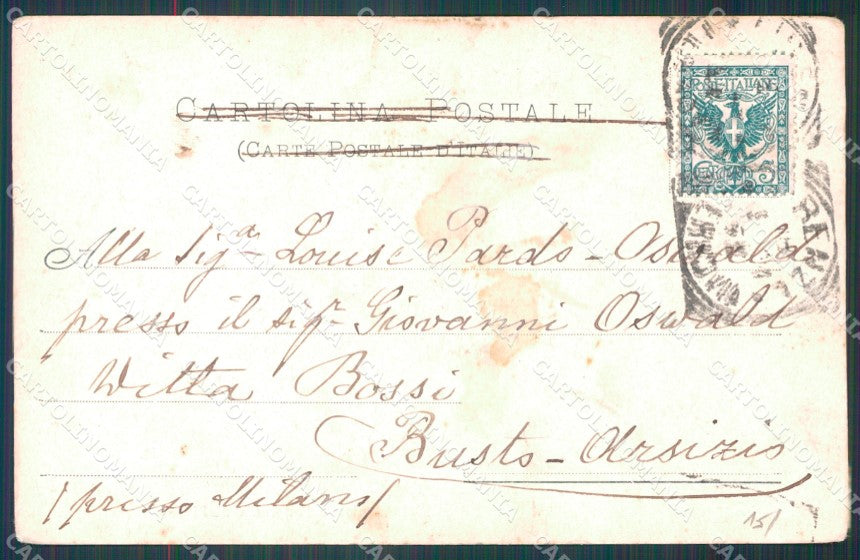 CARTOLINA POSTALE
(CARTE POSTALE D'ITALIE)
POSTE ITALIANE
CENT. 5
Alla Sig.ª Louise Pardo-Oswald
presso il sigr Giovanni Oswald
Ditta Bossi
Busto-Arsizio
/presso Milano/
15/
CARTOLINOMANIA